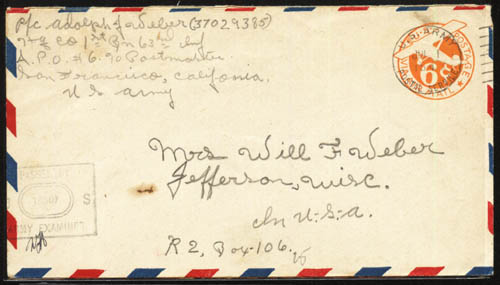 Pfc Adolph J Weber (37029385)
Hq Co 1st Bn 63rd Inf
A.P.O. #6. 90 Postmaster
San Francisco, California.
US army
U.S. ARMY
POSTAGE
6¢
VIA AIR MAIL
Mrs Will F Weber
Jefferson, Wisc.
In U.S.A.
R 2, Box 106.
PASSED BY
S
ARMY EXAMINER